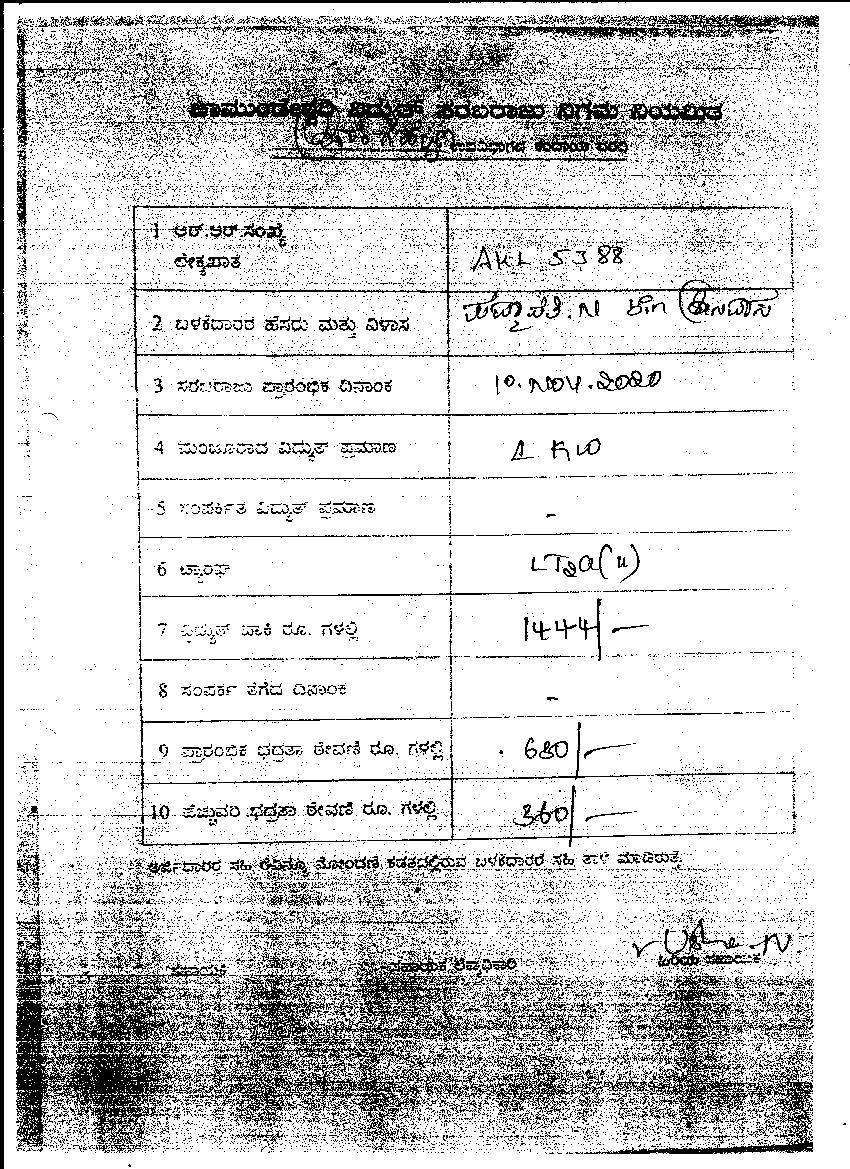 ಚಾಮುಂಡೇಶ್ವರಿ ವಿದ್ಯುತ್ ಸರಬರಾಜು ನಿಗಮ ನಿಯಮಿತ
ಉಪವಿಭಾಗದ ಕಂದಾಯ ವರದಿ
1 ಆರ್.ಆರ್.ಸಂಖ್ಯೆ
ಲೆಕ್ಕಖಾತೆ
AKL 5388
2 ಬಳಕೆದಾರರ ಹೆಸರು ಮತ್ತು ವಿಳಾಸ
N
3 ಸರಬರಾಜು ಪ್ರಾರಂಭಿಕ ದಿನಾಂಕ
10.NOV.2020
4 ಮಂಜೂರಾದ ವಿದ್ಯುತ್ ಪ್ರಮಾಣ
1 KW
5 ಸಂಪರ್ಕಿತ ವಿದ್ಯುತ್ ಪ್ರಮಾಣ
-
6 ಟ್ಯಾರಿಫ್
LT2a(ii)
7 ವಿದ್ಯುತ್ ಬಾಕಿ ರೂ. ಗಳಲ್ಲಿ
1444/-
8 ಸಂಪರ್ಕ ತೆಗೆದ ದಿನಾಂಕ
-
9 ಪ್ರಾರಂಬಿಕ ಭದ್ರತಾ ಠೇವಣಿ ರೂ. ಗಳಲ್ಲಿ
680/-
10 ಹೆಚ್ಚುವರಿ ಭದ್ರತಾ ಠೇವಣಿ ರೂ. ಗಳಲ್ಲಿ
360/-
ಅರ್ಜಿದಾರರ ಸಹಿ ಕಡತದಲ್ಲಿರುವ ಬಳಕೆದಾರರ ಸಹಿ ತಾಳೆ ಮಾಡಿರುತ್ತೆ
ಸಹಾಯಕ ಸಹಾಯಕ ಲೆಕ್ಕಾಧಿಕಾರಿ ಹಿರಿಯ ಸಹಾಯಕ